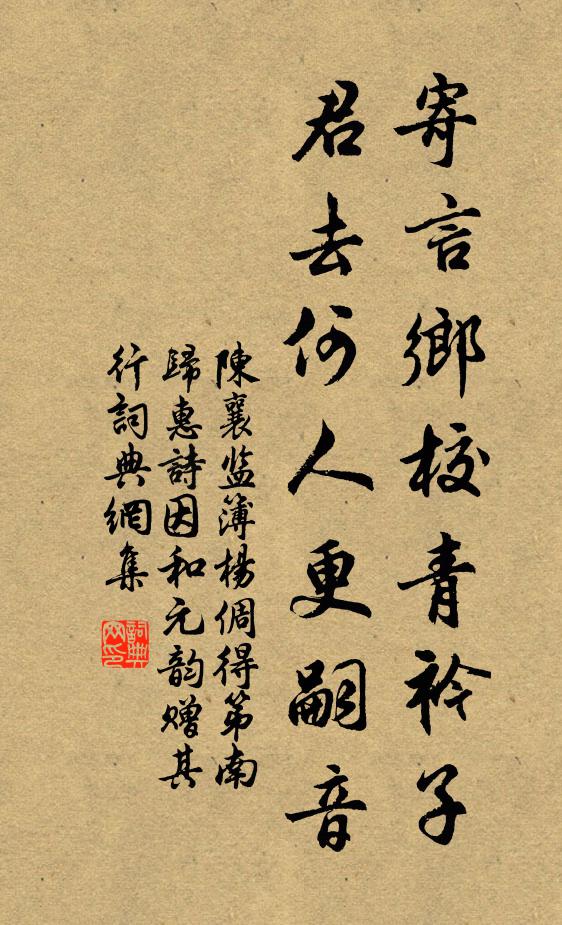 寄言鄉校青衿子
君去何人更嗣音
陳襄監簿楊倜得第南
歸惠詩因和元韵贈其
行詞典網集
詞典
网印